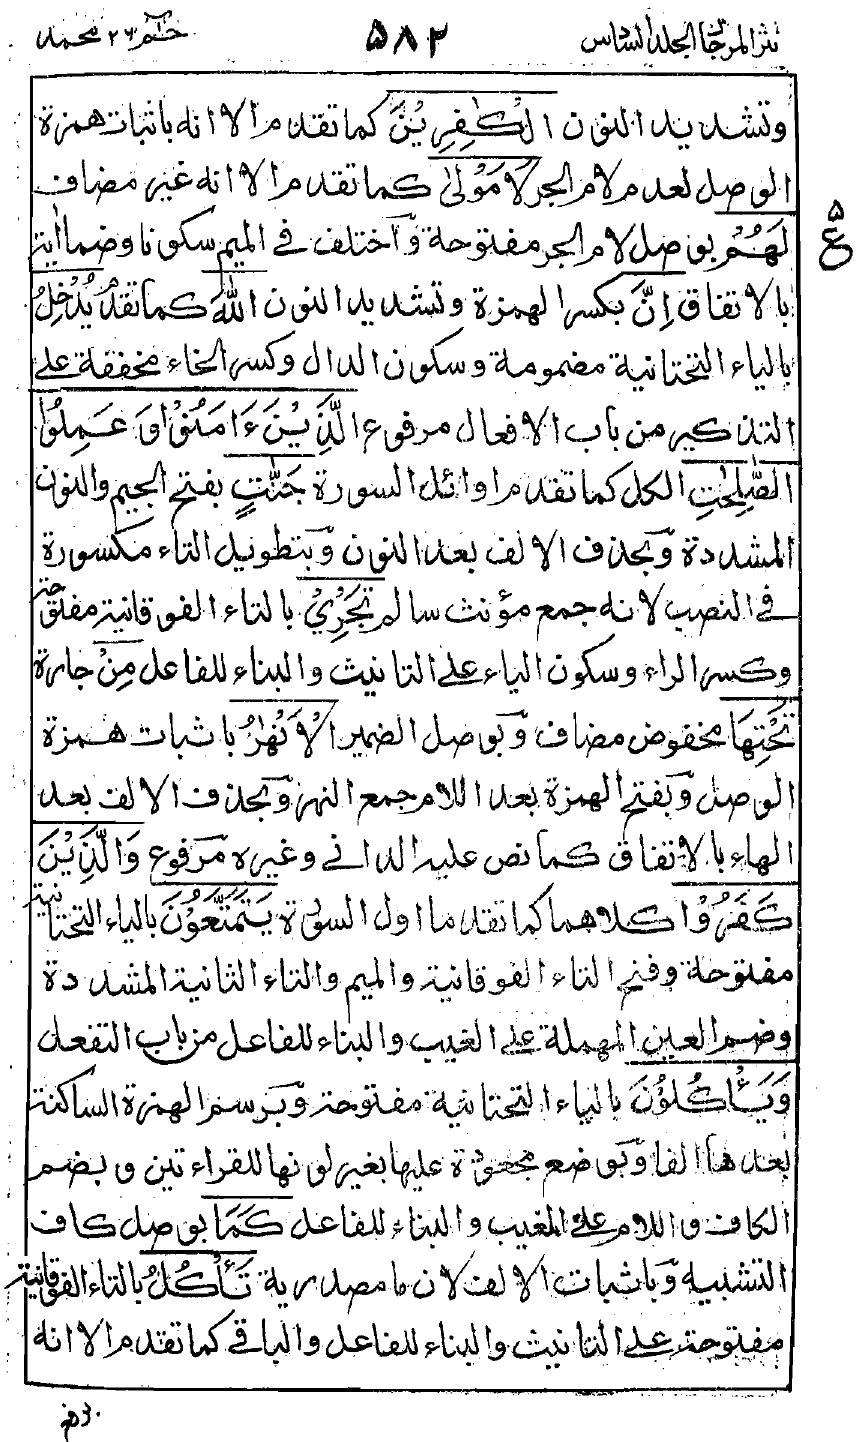 نثر المرجان المجلد السادس ٥٨٢ حٰمٓ ٢٦ محمد
وتشديد النون الْكٰفِرِيْنَ كما تقدم الا انه باثبات همزة
الوصل لعدم لام الجر لَا مَوْلٰى كما تقدم الا انه غير مضاف
لَهُمْ بوصل لام الجر مفتوحة وٓاختلف في الميم سكونا وضما اية
بالاتفاق اِنَّ بكسر الهمزة وتشديد النون اللّٰهَ كما تقدم يُدْخِلُ
بالياء التحتانية مضمومة وسكون الدال وكسر الخاء مخففة على
التذكير من باب الافعال مرفوع الَّذِيْنَ ءَامَنُوْا وَ عَمِلُوا
الصّٰلِحٰتِ الكل كما تقدم اوائل السورة جَنّٰتٍ بفتح الجيم والنون
المشددة وٓبحذف الالف بعد النون وٓبتطويل التاء مكسورة
في النصب لانه جمع مؤنث سالم تَجْرِيْ بالتاء الفوقانية مفتوحة
وكسر الراء وسكون الياء على التانيث والبناء للفاعل مِنْ جارة
تَحْتِهَا مخفوض مضاف وٓبوصل الضمير الْاَنْهٰرُ باثبات همزة
الوصل وٓبفتح الهمزة بعد اللام جمع النهر وٓبحذف الالف بعد
الهاء بالاتفاق كما نص عليه الداني وغيره مرفوع وَالَّذِيْنَ
كَفَرُوْا كلاهما كما تقدما اول السورة يَتَمَتَّعُوْنَ بالياء التحتانية
مفتوحة وفتح التاء الفوقانية والميم والتاء الثانية المشددة
وضم العين المهملة على الغيب والبناء للفاعل من باب التفعل
وَيَاْكُلُوْنَ بالياء التحتانية مفتوحة وٓبرسم الهمزة الساكنة
بعدها الفا وٓبوضع مجعودة عليها بغير لونها للقراءتين وبضم
الكاف واللام على المغيب والبناء للفاعل كَمَا بوصل كاف
التشبيه وٓباثبات الالف لان ما مصدرية تَاْكُلُ بالتاء الفوقانية
مفتوحة على التانيث والبناء للفاعل والباقي كما تقدم الا انه
٥
ع